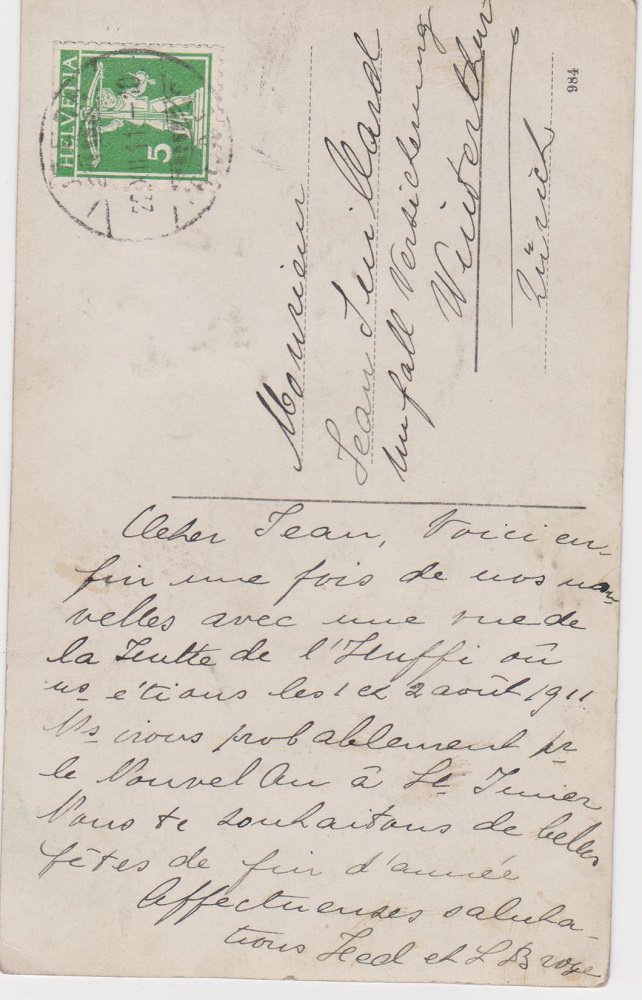 HELVETIA
5
984
Monsieur
Jean Juillard
Unfall Versicherung
Winterthur
Zürich
Cher Jean, Voici en-
fin une fois de nos nou
velles avec une vue de
la de l'Huffi où
ns étions les 1 et 2 août 1911
Ns irons probablement pr
le Nouvel An à St Imier
Nous te souhaitons de belles
fêtes de fin d'année
Affectueuses saluta-
tions Hed et L